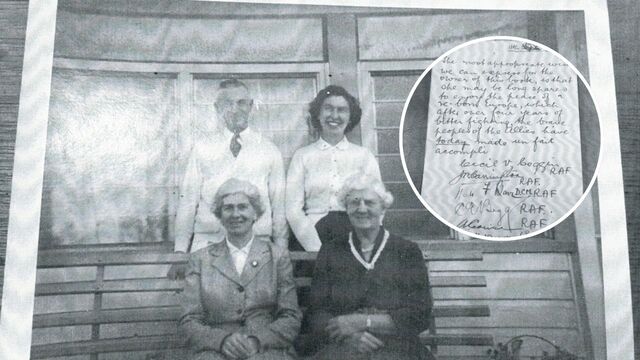 The most appropriate wish
we can express for the
owner of this book, is that
she may be long spared
to enjoy the peace of a
re-born Europe, which
after over four years of
bitter fighting the brave
peoples of the Allies have
today made un fait
accompli
Cecil V. Coggin
RAF
RAF.
RAF
RAF.
RAF